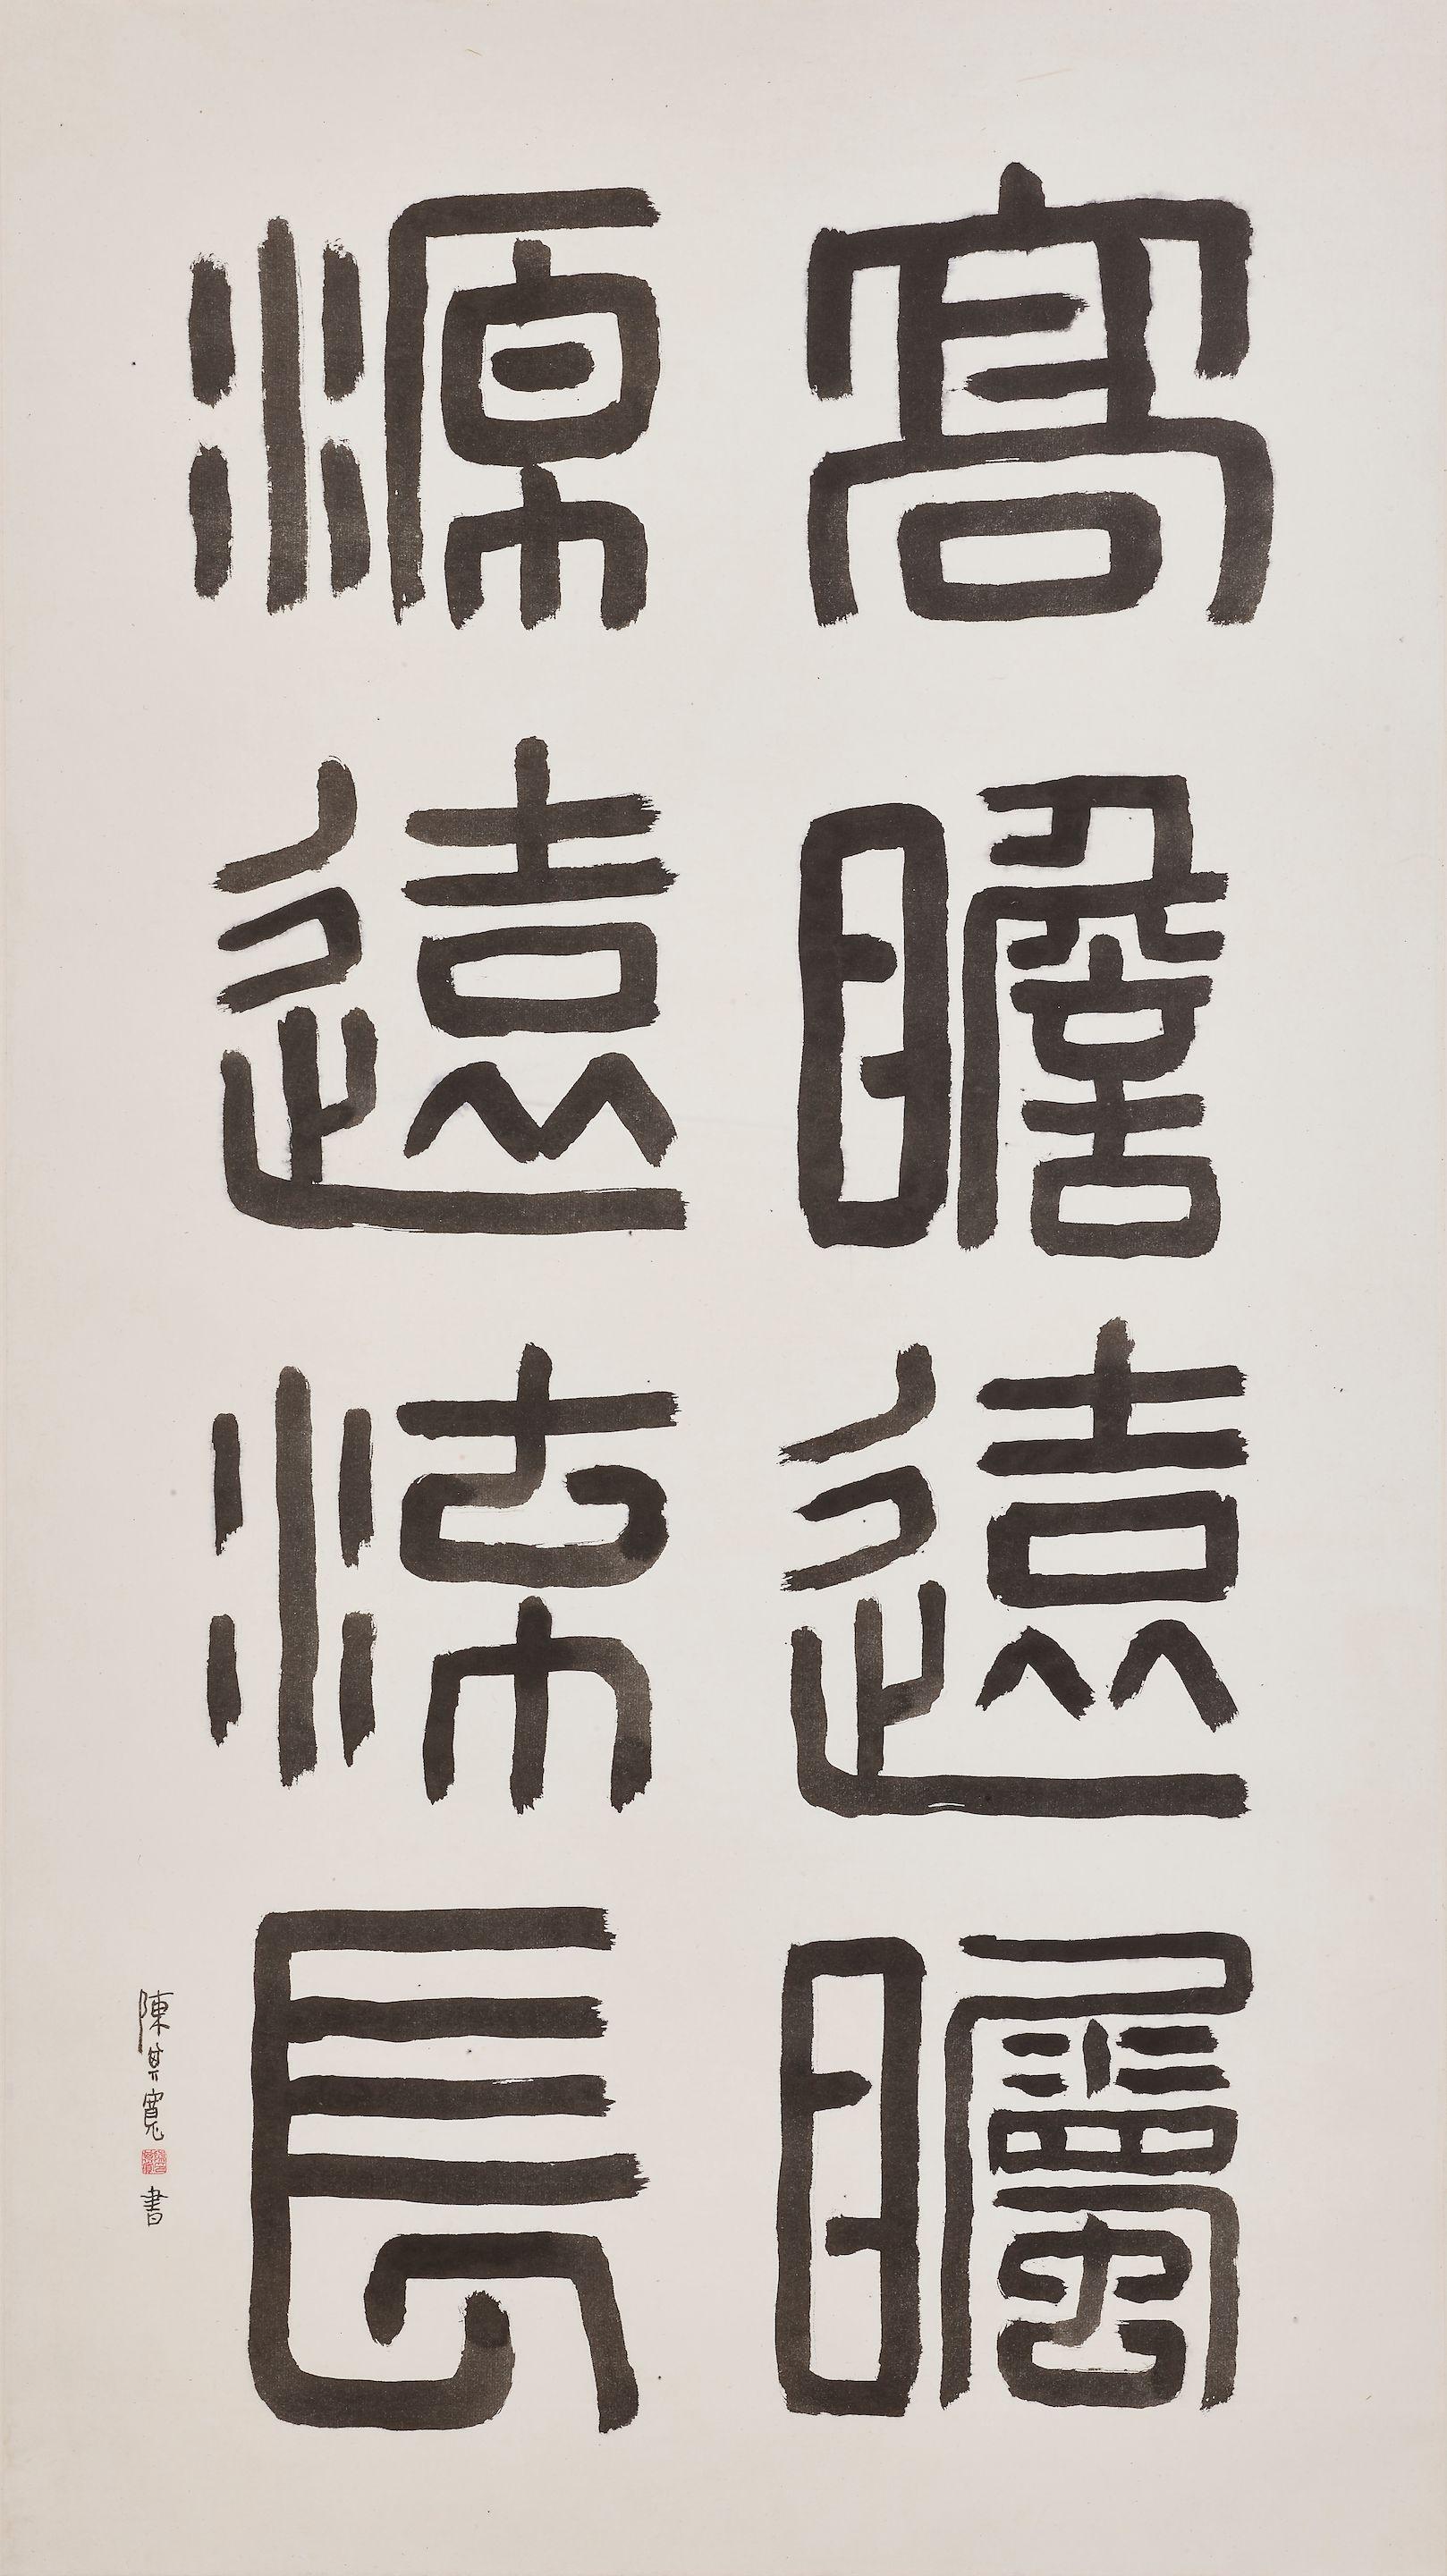 高瞻遠矚
源遠流長
陳其寬 書